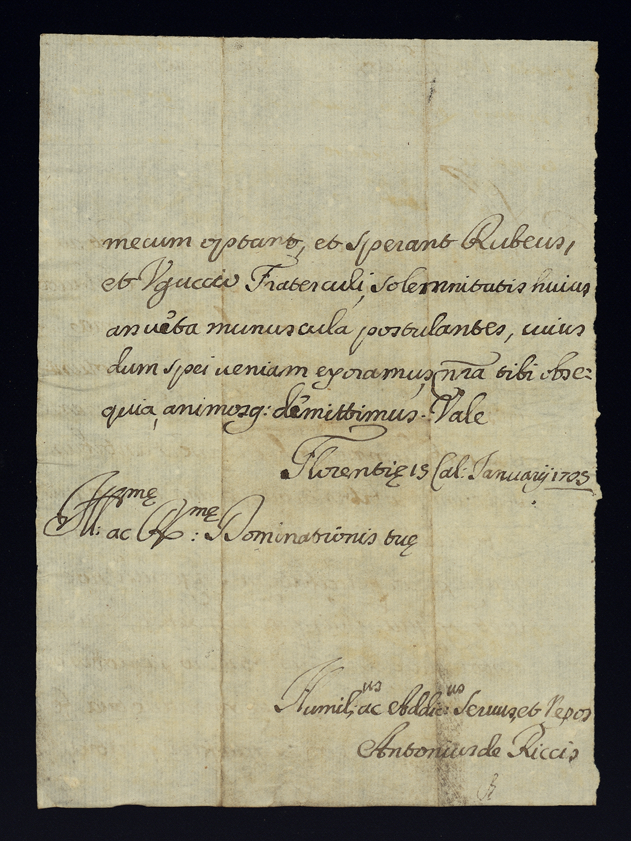 mecum optant, et sperant Rubeus,
et Vguccio Fraterculi, solemnitatis huius
ansuēta munuscula postulantes, cuius
dum spei ueniam exoramus, nr̄a tibi obse=
quia, animosq: demittimus. Vale
Florentię 15 Cal: Januarij 1705
Ill:mę ac R:mę Dominationis tuę
Humil:us ac Addic:us Seruus, et Nepos
Antonius de Riccis